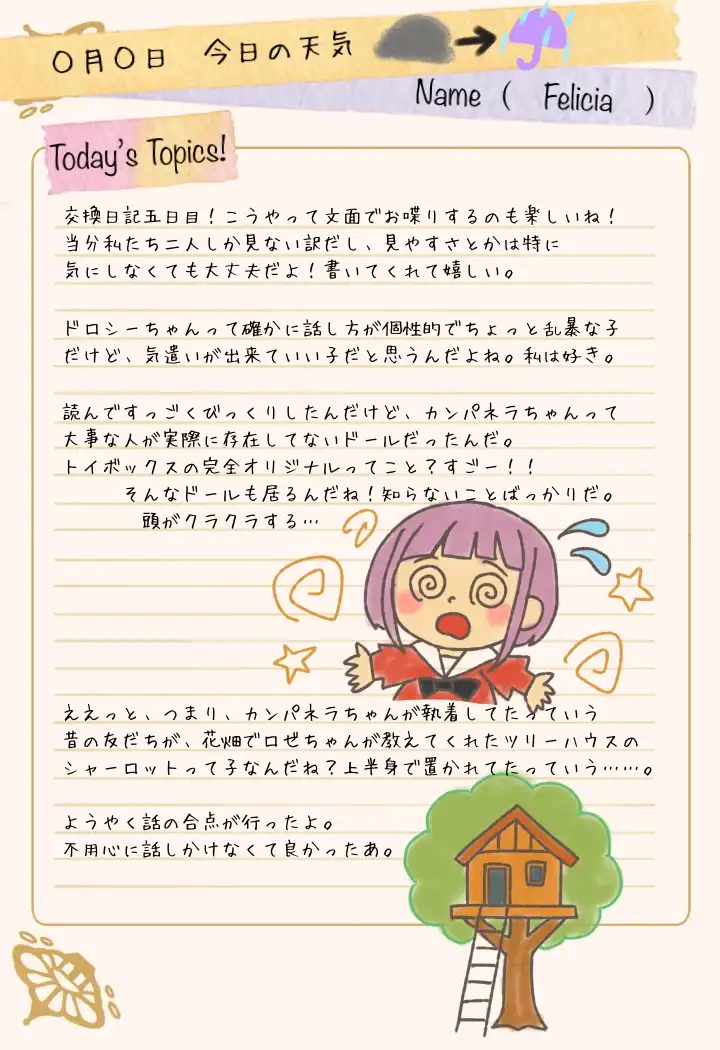 〇月〇日 今日の天気
Name ( Felicia )
Today's Topics!
交換日記五日目！こうやって文面でお喋りするのも楽しいね！
当分私たち二人しか見ない訳だし、見やすさとかは特に
気にしなくても大丈夫だよ！書いてくれて嬉しい。
ドロシーちゃんって確かに話し方が個性的でちょっと乱暴な子
だけど、気遣いが出来ていい子だと思うんだよね。私は好き。
読んですっごくびっくりしたんだけど、カンパネラちゃんって
大事な人が実際に存在してないドールだったんだ。
トイボックスの完全オリジナルってこと？すごー！！
そんなドールも居るんだね！知らないことばっかりだ。
頭がクラクラする…
ええっと、つまり、カンパネラちゃんが執着してたっていう
昔の友だちが、花畑でロゼちゃんが教えてくれたツリーハウスの
シャーロットって子なんだね？上半身で置かれてたっていう……。
ようやく話の合点が行ったよ。
不用心に話しかけなくて良かったあ。